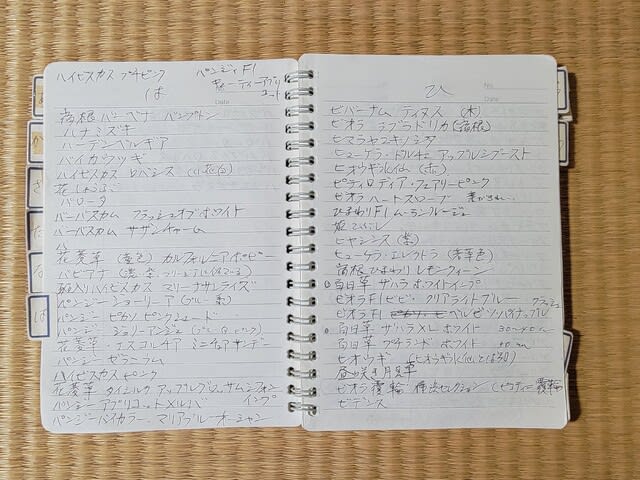 ハイビスカス プチピンク
パンジィ F1
ビューティーアプリ
コット
は
Date
宿根バーベナ バンプトン
ハナミズキ
ハーデンベルギア
バイカウツギ
ハイビスカス ロバンス
花しょうぶ
バロータ
バーバスカム フラッシュオブホワイト
バーバスカム サザンチャーム
ハ
花菱草 (黄色) カルフォルニアポピー
バビアナ
斑入りハイビスカス マリーナサンライズ
パンジー シェリーア (ブルー系)
パンジー ピカソ ピンクシェード
パンジー ジョリーアンジェ
花菱草・エスコルチア ミニチュアサンデー
パンジー ゼラニラム
ハイビスカス ピンク
花菱草 タイシルク アップルブロッサムシフォン
インプ
パンジー アプリコットメルバ
パンジー バイカラー マリアブルーオーシャン
ひ
No.
Date
ビバーナム ティヌス (木)
ビオラ ラブラドリカ (宿根)
ヒマラヤユキノシタ
ヒューケラ・ドルチェ アップルシブースト
ヒオウギ水仙 (赤)
ピティロディア・フェアリーピンク
ビオラ ハートスローブ
ひまわりF1ムーランルージュ
姫ひおし
ヒヤシンス (紫)
ヒューケラ・エレクトラ (黄葉色)
宿根ひまわり レモンクィーン
百日草 サハラホワイトインプ
ビオラF1ビビ・クリアライトブルー
ビオラF1 ベルビソパイナップル クラッシュ
百日草 サハラXLホワイト 30〜40cm
百日草 プチランド ホワイト
ヒオウギ (ヒオウギ水仙とは別)
昼咲き月見草
ビオラ 覆輪 種出セレクション (ピコティー覆輪
ビデンス
か
さ
た
な
は